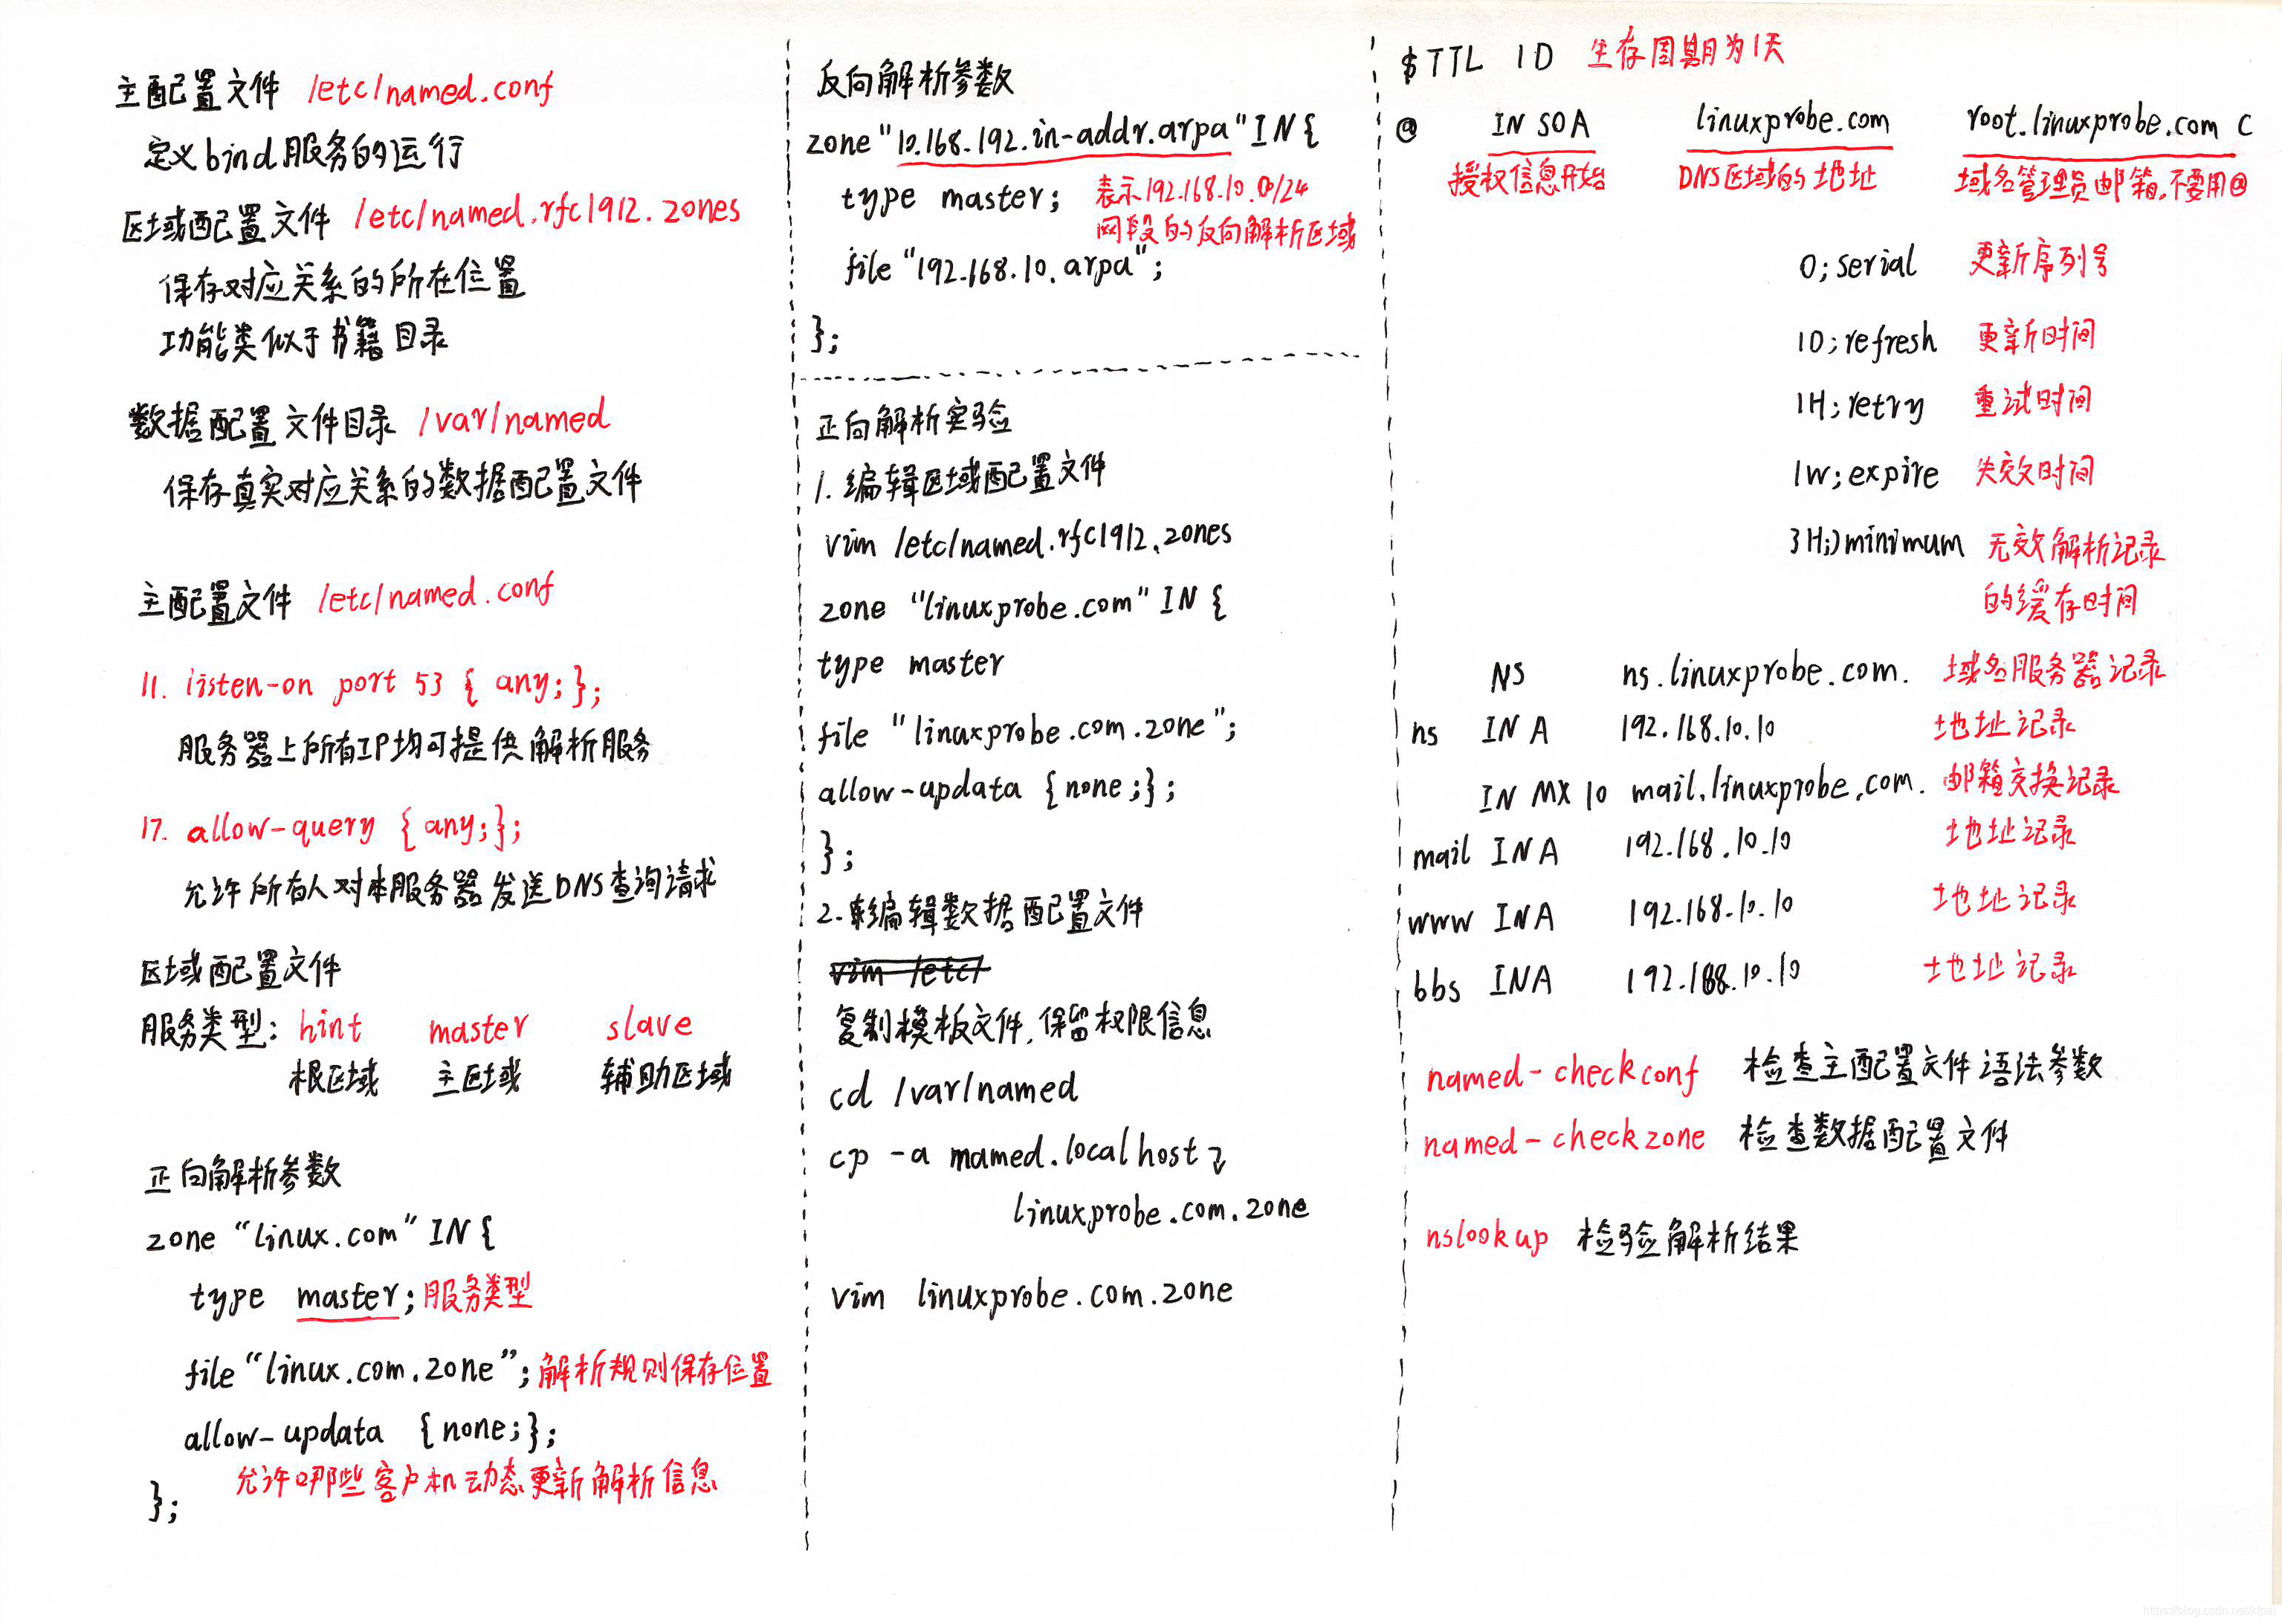 主配置文件 /etc/named.conf
定义bind服务的运行
区域配置文件 /etc/named.rfc1912.zones
保存对应关系的所在位置
功能类似于书籍目录
数据配置文件目录 /var/named
保存真实对应关系的数据配置文件
主配置文件 /etc/named.conf
11. listen-on port 53 { any; };
服务器上所有IP均可提供解析服务
17. allow-query { any; };
允许所有人对本服务器发送DNS查询请求
区域配置文件
服务类型: hint master slave
根区域 主区域 辅助区域
正向解析参数
zone "linux.com" IN {
type master; 服务类型
file "linux.com.zone"; 解析规则保存位置
allow-updata {none;};
允许哪些客户机动态更新解析信息
};
反向解析参数
zone "10.168.192.in-addr.arpa" IN {
type master; 表示192.168.10.0/24
网段的反向解析区域
file "192.168.10.arpa";
};
正向解析实验
1. 编辑区域配置文件
vim /etc/named.rfc1912.zones
zone "linuxprobe.com" IN {
type master
file "linuxprobe.com.zone";
allow-updata {none;};
};
2. 编辑数据配置文件
vim /etc/
复制模板文件,保留权限信息
cd /var/named
cp -a mamed.localhost
linuxprobe.com.zone
vim linuxprobe.com.zone
$TTL 1D 生存周期为1天
@ IN SOA linuxprobe.com root.linuxprobe.com (
授权信息开始 DNS区域的地址 域名管理员邮箱,不要用@
0;serial 更新序列号
1D;refresh 更新时间
1H;retry 重试时间
1W;expire 失效时间
3H;)minimum 无效解析记录
的缓存时间
NS ns.linuxprobe.com. 域名服务器记录
ns IN A 192.168.10.10 地址记录
IN MX 10 mail.linuxprobe.com. 邮箱交换记录
mail IN A 192.168.10.10 地址记录
www IN A 192.168.10.10 地址记录
bbs IN A 192.168.10.10 地址记录
named-checkconf 检查主配置文件语法参数
named-checkzone 检查数据配置文件
nslookup 检验解析结果
https://blog.csdn.net/kfpal